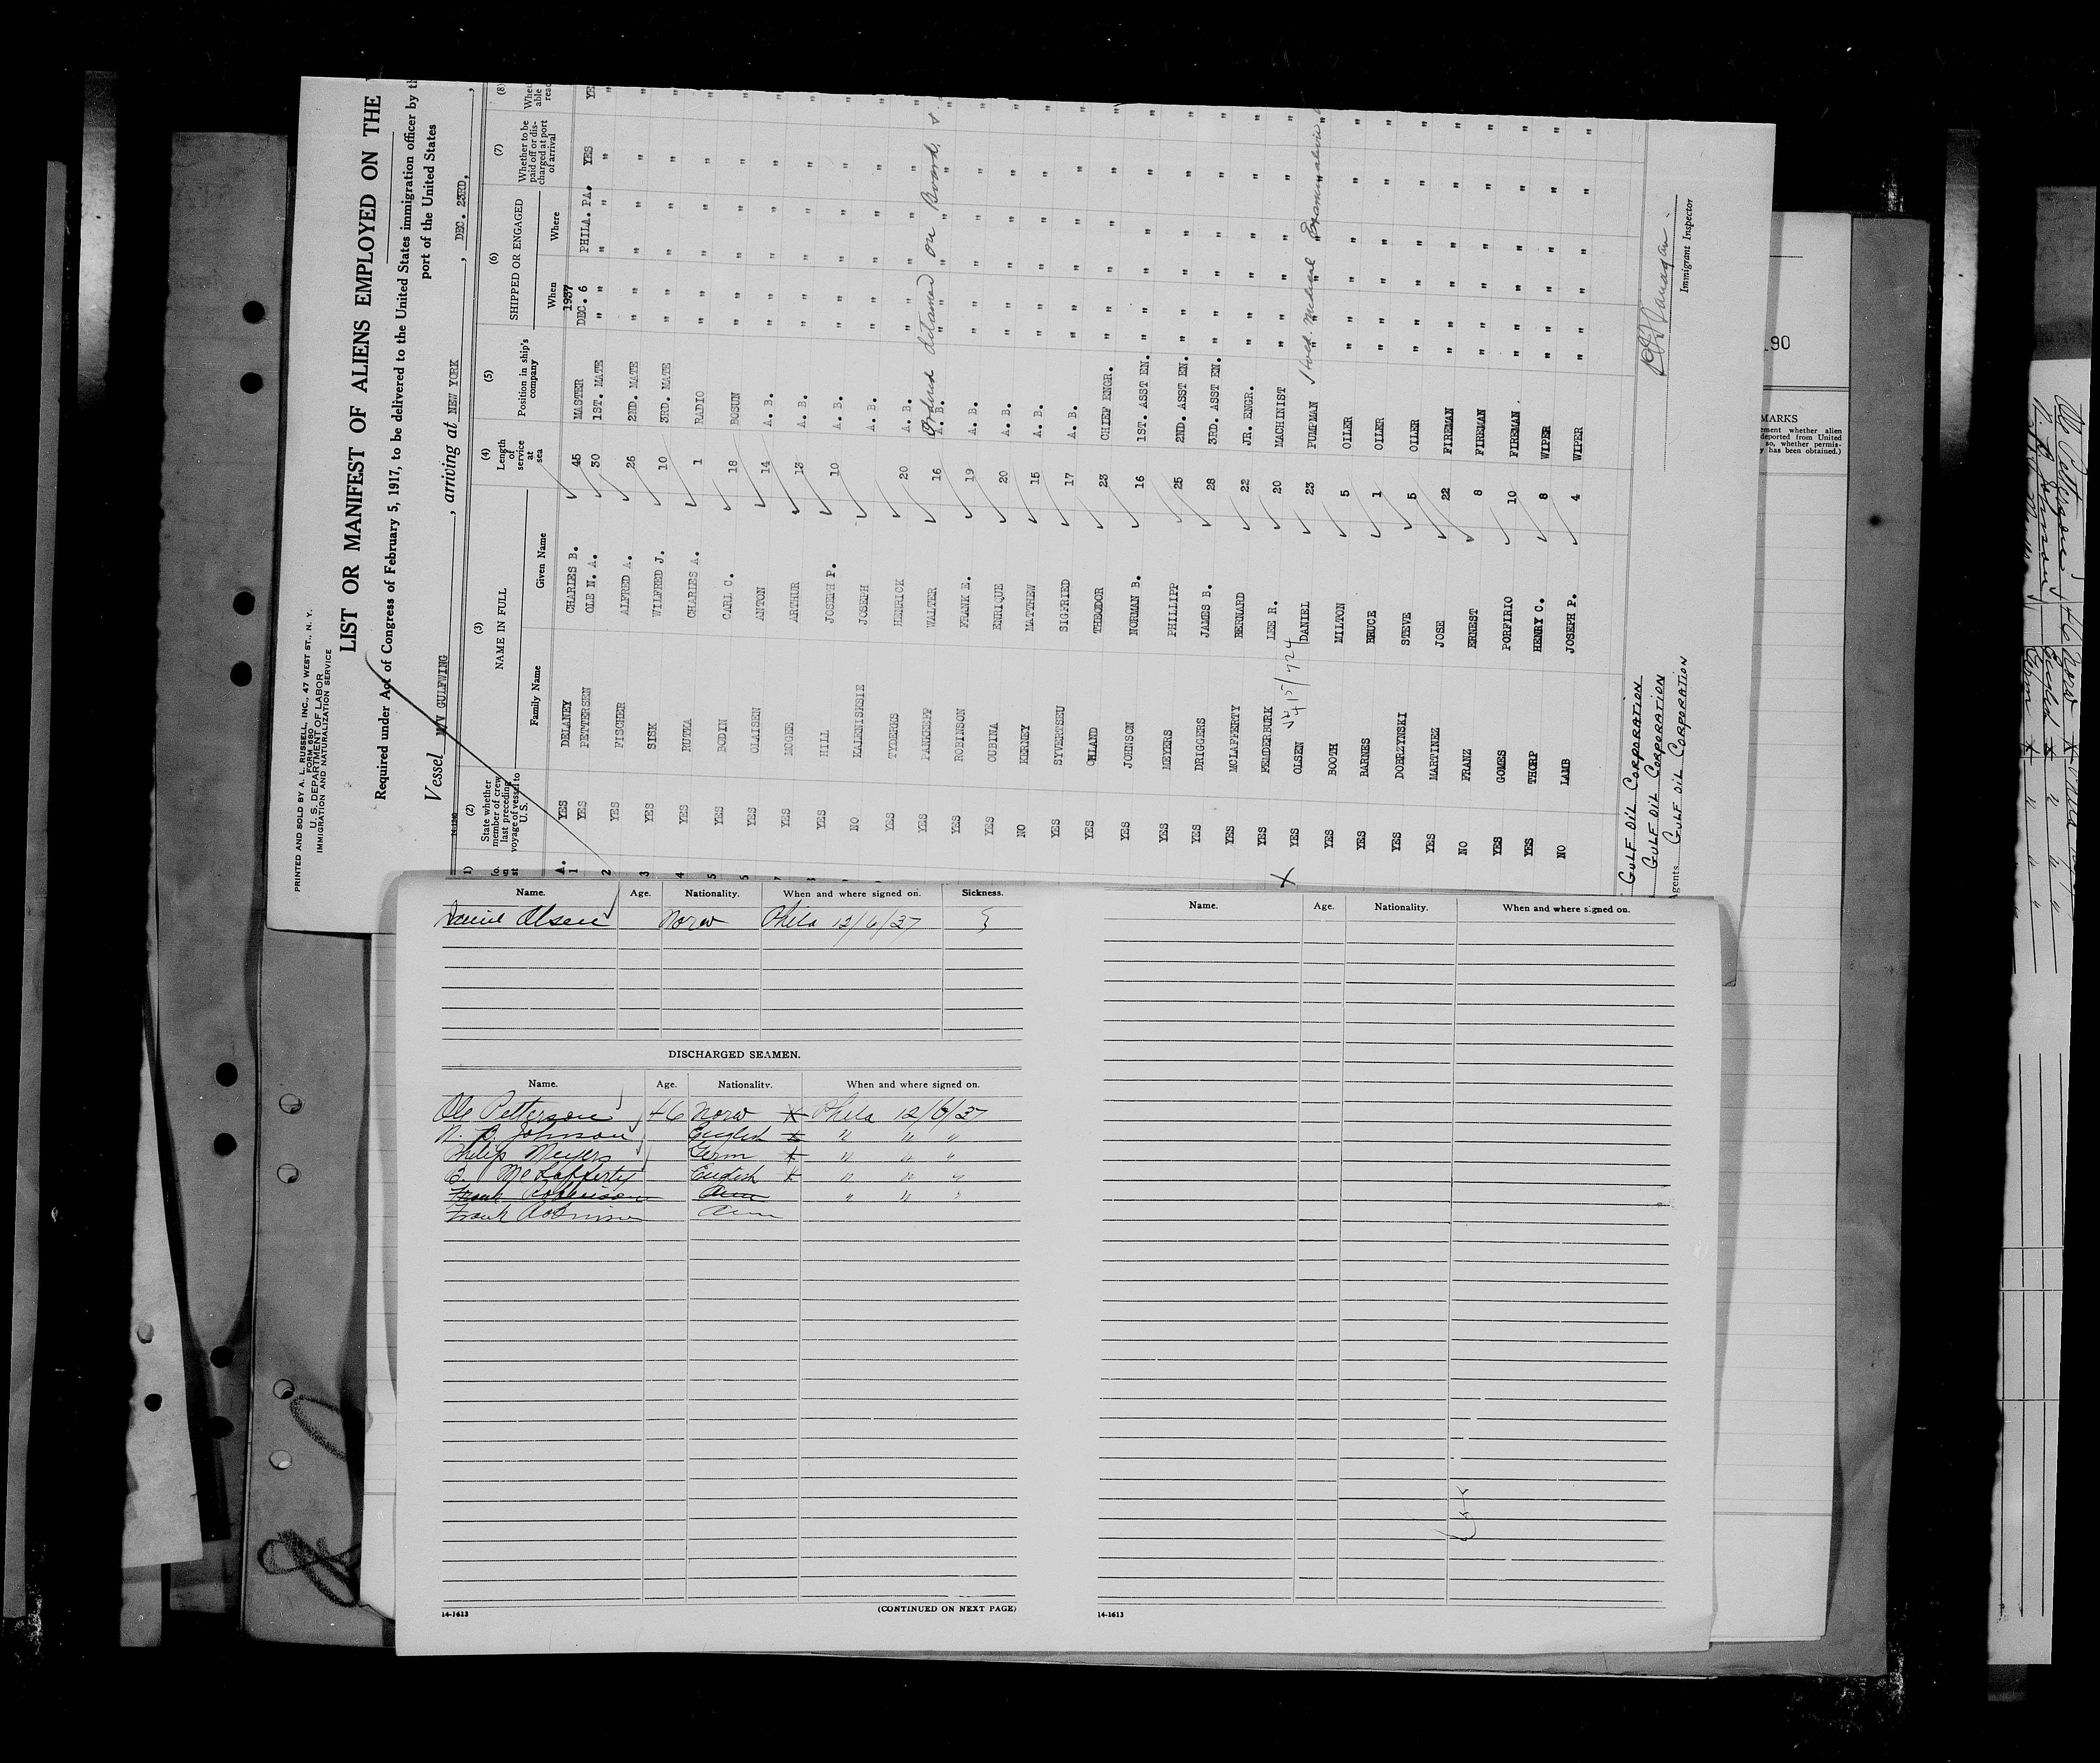 PRINTED AND SOLD BY A. L. RUSSELL, INC., 47 WEST ST., N. Y.
FORM 680
U. S. DEPARTMENT OF LABOR
IMMIGRATION AND NATURALIZATION SERVICE
LIST OR MANIFEST OF ALIENS EMPLOYED ON THE
Required under Act of Congress of February 5, 1917, to be delivered to the United States immigration officer by th
port of the United States
Vessel M/V GULFWING, arriving at NEW YORK, DEC. 23RD,
(2) State whether member of crew last preceding voyage of vessel to U. S.
(3) NAME IN FULL Family Name Given Name
(4) Length of service at sea
(5) Position in ship's company
(6) SHIPPED OR ENGAGED When Where
(7) Whether to be paid off or discharged at port of arrival
(8)
1937
A. YES DELANEY CHARLES B. 45 MASTER DEC. 6 PHILA. PA. YES YE
1 YES PETTERSEN OLE N. A. 30 1ST. MATE " " " " " "
2 YES FISCHER ALFRED A. 26 2ND. MATE " " " " " "
3 YES SISK WILFRED J. 10 3RD. MATE " " " " " "
4 YES RUTKA CHARLES A. 1 RADIO " " " " " "
5 YES BODIN CARL C. 18 BOSUN " " " " " "
YES OLAISEN ANTON 14 A. B. " " " " " "
YES MOGER ARTHUR 13 A. B. " " " " " "
YES HILL JOSEPH P. 10 A. B. " " " " " "
NO KALENISKSIE JOSEPH A. B. " " " " " "
YES TYDERKS HENRICK 20 A. B. " " " " " "
YES PANKEPP WALTER 16 A. B. " " " " " "
Ordered detained on Board,
YES ROBINSON FRANK E. 19 A. B. " " " " " "
YES CUBINA ENRIQUE 20 A. B. " " " " " "
NO KERNEY MATTHEW 15 A. B. " " " " " "
YES SYVERTSEU SIGFRIED 17 A. B. " " " " " "
YES OHLAND THEODOR 23 CHIEF ENGR. " " " " " "
YES JOHNSON NORMAN B. 16 1ST. ASST EN. " " " " " "
YES MEYERS PHILLIPP 25 2ND. ASST EN. " " " " " "
YES DRIGGERS JAMES B. 28 3RD. ASST EN. " " " " " "
YES MCLAFFERTY BERNARD 22 JR. ENGR. " " " " " "
YES FENDERBURK LEE R. 20 MACHINIST " " " " " "
X YES OLSEN DANIEL 23 PUMPMAN Medical Examination
YES BOOTH MILTON 5 OILER " " " " " "
YES BARNES BRUCE 1 OILER " " " " " "
YES DOBRZYNSKI STEVE 5 OILER " " " " " "
YES MARTINEZ JOSE 22 FIREMAN " " " " " "
NO FRANZ ERNEST 8 FIREMAN " " " " " "
YES GOMES PORFIRIO 10 FIREMAN " " " " " "
YES THORP HENRY C. 8 WIPER " " " " " "
NO LAMB JOSEPH P. 4 WIPER " " " " " "
GULF OIL CORPORATION
GULF OIL CORPORATION
Agents. GULF OIL CORPORATION
Immigrant Inspector
190
MARKS
Name. Age. Nationality. When and where signed on. Sickness.
Daniel Olsen Norw Phila 12/6/37
DISCHARGED SEAMEN.
Name. Age. Nationality. When and where signed on.
Ole Petterson 46 Norw X Phila 12/6/37
N. B. Johnson English X " " "
Philip Meyers Germ X " " "
B. McLafferty English X " " "
Frank Robbinson Am " " "
Frank Robinson Am
14-1613
(CONTINUED ON NEXT PAGE)
Name. Age. Nationality. When and where signed on.
14-1613